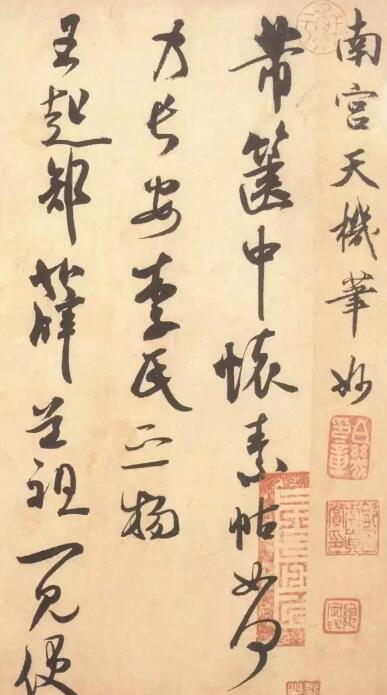 南宮天機筆妙
芾篋中懷素帖如何
乃長安李氏之物
王起部薛道祖一見便